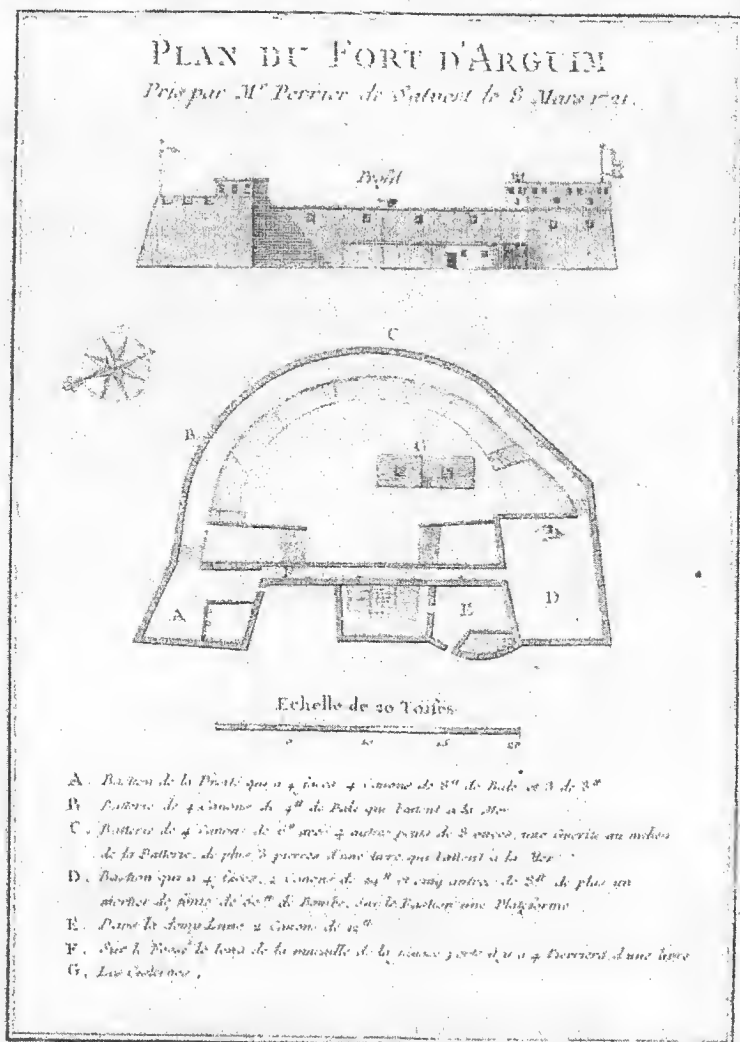 PLAN DU FORT D'ARGUIM
Pris par Mr Perrier de Salvert le 8 Mars 1721.
Profil
C
B
G
F
A
E
D
Echelle de 20 Toises
10 15 20
A. Bastion de la qui a 4 faces 4 Canons de 8tt de Bale et 3 de
B. Batterie de 4 Canons de 4tt de Bale qui battent a la Mer
C. Batterie de 4 Canons de 6tt avec 4 autres petits de 8 onces, une au milieu
de la Batterie, de plus 3 pieces d'une livre qui battent a la Mer
D. Bastion qui a 4 faces, 2 Canons de 24tt et cinq autres de 8tt de plus un
mortier de fonte de de Bombe, sur le Bastion une Plateforme
E. Dans la demi Lune 2 Canons de 12tt
F. Sur le Fossé le long de la muraille de la fausse porte il y a 4 Pierriers d'une livre
G. Les Citernes.